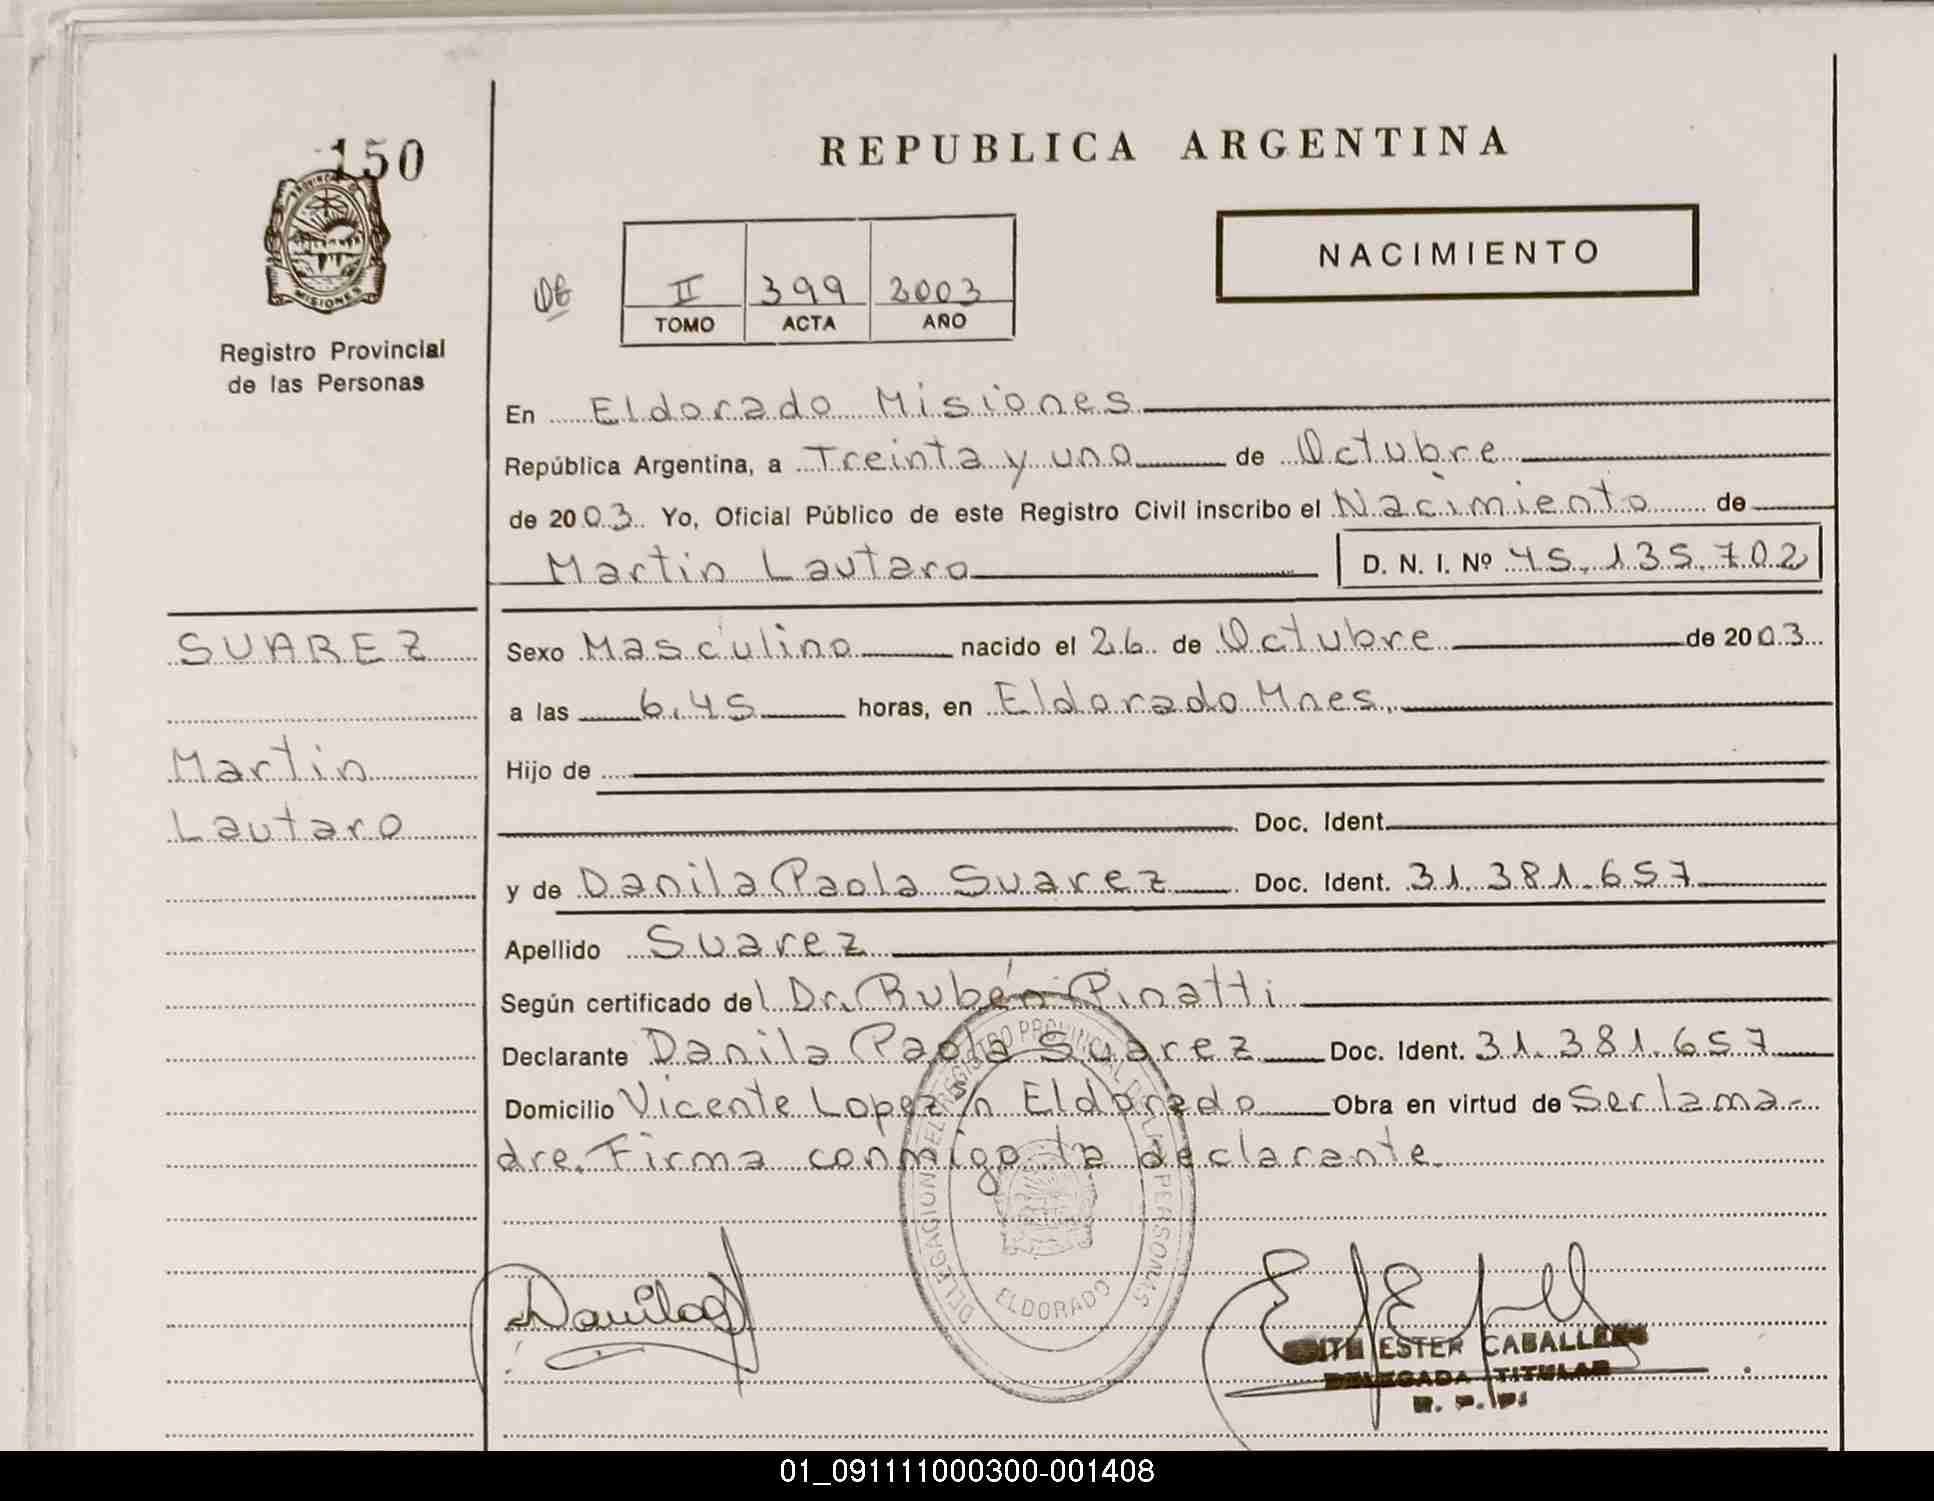 150
PROVINCIA DE
MISIONES
Registro Provincial
de las Personas
REPUBLICA ARGENTINA
NACIMIENTO
II 399 2003
TOMO ACTA AÑO
En Eldorado Misiones
República Argentina, a Treinta y uno de Octubre
de 2003. Yo, Oficial Público de este Registro Civil inscribo el Nacimiento de
Martin Lautaro D. N. I. Nº 45.135.702
SUAREZ
Martin
Lautaro
Sexo Masculino nacido el 26 de Octubre de 2003
a las 6.45 horas, en Eldorado Mnes.
Hijo de
Doc. Ident.
y de Danila Paola Suarez Doc. Ident. 31.381.657
Apellido Suarez
Según certificado del Dr. Rubén Pinatti
Declarante Danila Paola Suarez Doc. Ident. 31.381.657
Domicilio Vicente Lopez s/n Eldorado Obra en virtud de Ser la ma-
dre. Firma conmigo la declarante
DELEGACION DEL REGISTRO PROVINCIAL DE LAS PERSONAS
ELDORADO
Danila
EDITH ESTER CABALLERO
DELEGADA TITULAR
R. P. P.
01_091111000300-001408